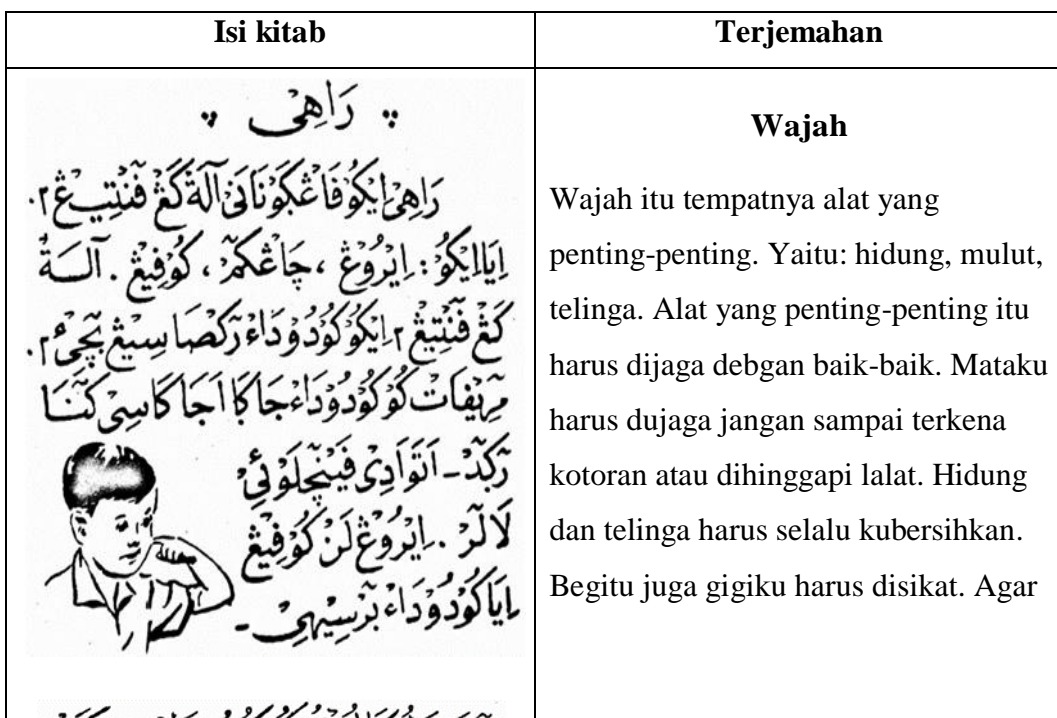 Isi kitab
Terjemahan
رَاهِىْ
رَاهِىْ اِيْكُوْ فَاڠْڮَوْنَانَىْ آلَةْ كَڠْ فَنْتِيْڠ٢.
اِيَااِيْكُوْ: اِيْرُوْڠْ، چَاڠْكٓمْ، كُوْفِيْڠْ. آلَةْ
كَڠْ فَنْتِيْڠْ٢ اِيْكُوْ كُوْدُوْ دَاءْ رٓكْصَا سِيْڠْ بٓچِىْءْ٢.
مَرِيْفَاتْ كُوْ كُوْدُوْ دَاءْ جَاڮَا اَجَا ڮَاسِىْ كٓنَا
رٓڮٓدْ - اَتَوَا دِىْ فَيْنْچٓلَوْئِىْ
لَالٓرْ. اِيْرُوْڠْ لَنْ كُوْفِيْڠْ
اِيَا كُوْدُوْ دَاءْ بٓرْسِيْهِىْ -
Wajah
Wajah itu tempatnya alat yang
penting-penting. Yaitu: hidung, mulut,
telinga. Alat yang penting-penting itu
harus dijaga debgan baik-baik. Mataku
harus dujaga jangan sampai terkena
kotoran atau dihinggapi lalat. Hidung
dan telinga harus selalu kubersihkan.
Begitu juga gigiku harus disikat. Agar